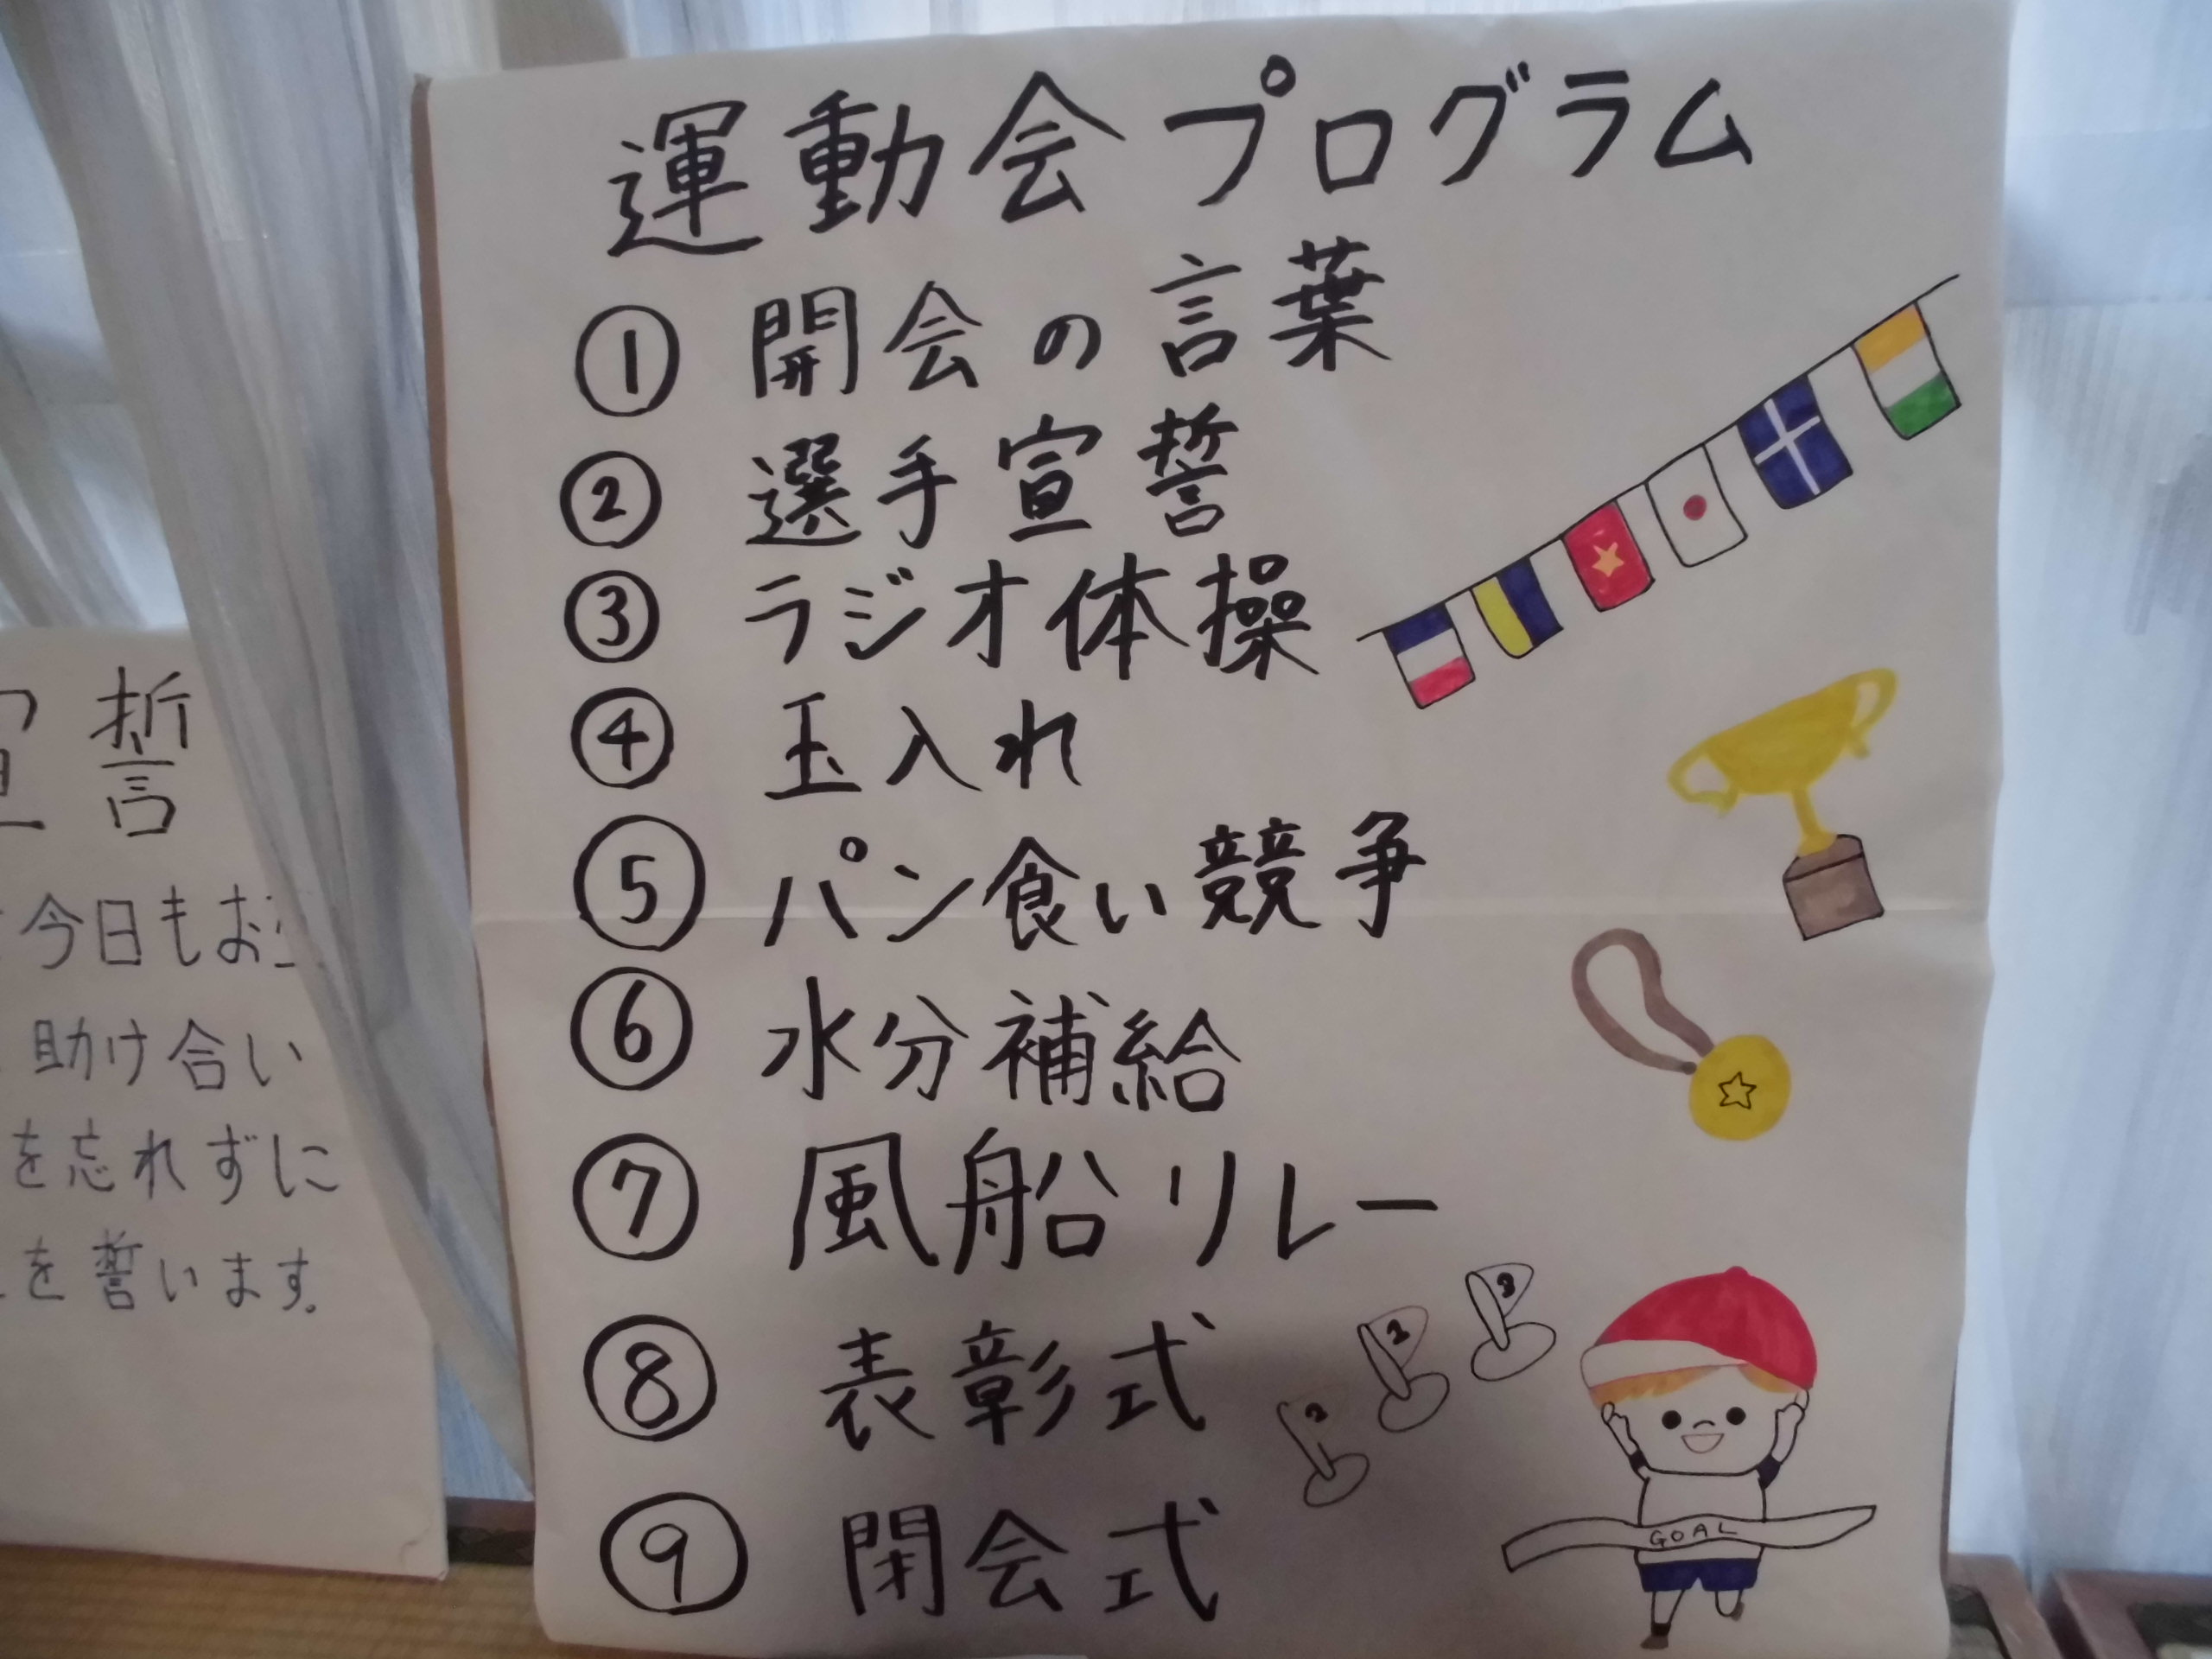 運動会プログラム
① 開会の言葉
② 選手宣誓
③ ラジオ体操
④ 玉入れ
⑤ パン食い競争
⑥ 水分補給
⑦ 風船リレー
⑧ 表彰式
⑨ 閉会式
GOAL
宣誓
今日もお
助け合い
を忘れずに
を誓います。